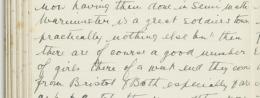 now having them done in Semi matte
Warminster is a great soldiers town
practically nothing else but them
there are of course a good number
of girls there of a week end they come
from Bristol & Bath especially for